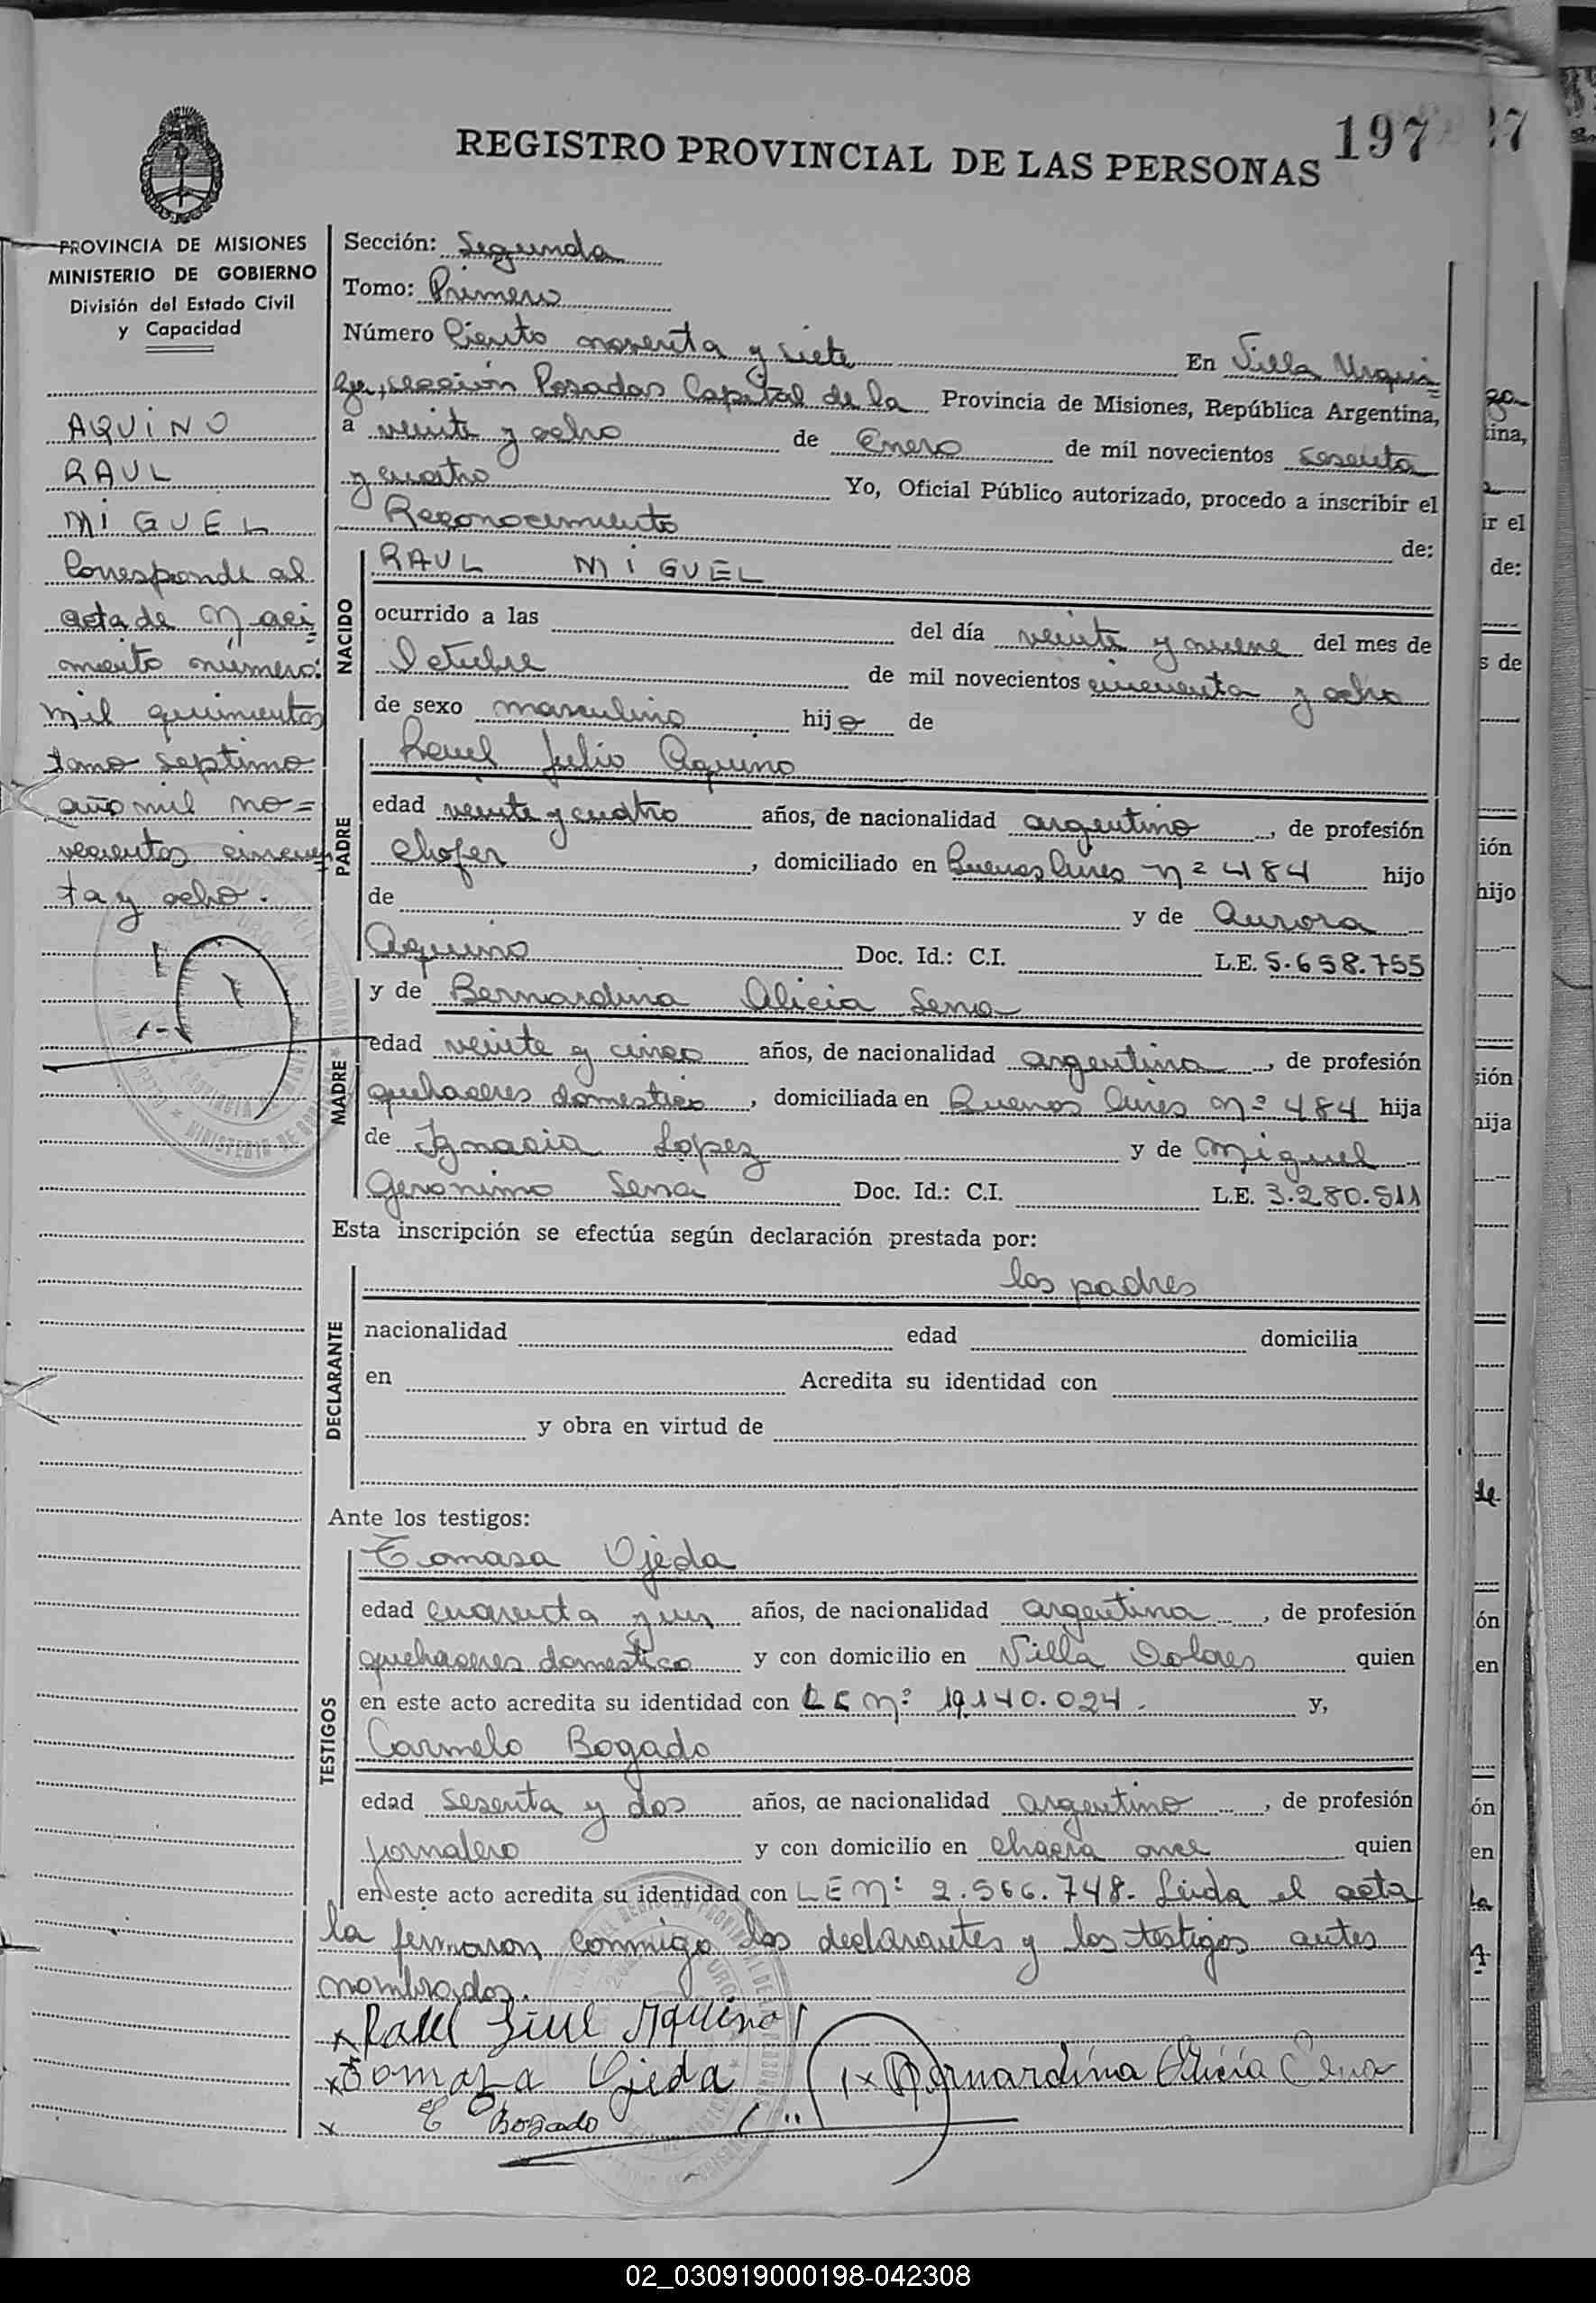 REGISTRO PROVINCIAL DE LAS PERSONAS
197
27
PROVINCIA DE MISIONES
MINISTERIO DE GOBIERNO
División del Estado Civil
y Capacidad
AQUINO
RAUL
MIGUEL
Corresponde al
acta de Naci
miento número:
mil quinientos
tomo septimo
año mil no=
vecientos cincuen
ta y ocho.
Sección: Segunda
Tomo: Primero
Número Ciento noventa y siete En Villa Urqui
za, sección Posadas Capital de la Provincia de Misiones, República Argentina,
a veinte y ocho de Enero de mil novecientos sesenta
y cuatro Yo, Oficial Público autorizado, procedo a inscribir el
Reconocimiento de:
NACIDO
RAUL MIGUEL
ocurrido a las del día veinte y nueve del mes de
Octubre de mil novecientos cincuenta y ocho
de sexo masculino hijo de
PADRE
Raul Julio Aquino
edad veinte y cuatro años, de nacionalidad argentino, de profesión
chofer, domiciliado en Buenos Aires nº 484 hijo
de y de Aurora
Aquino Doc. Id.: C.I. L.E. 5.658.755
MADRE
y de Bernardina Alicia Sena
edad veinte y cinco años, de nacionalidad argentina, de profesión
quehaceres domestico, domiciliada en Buenos Aires nº 484 hija
de Ignacia Lopez y de Miguel
Geronimo Sena Doc. Id.: C.I. L.E. 3.280.511
Esta inscripción se efectúa según declaración prestada por:
DECLARANTE
los padres
nacionalidad edad domicilia
en Acredita su identidad con
y obra en virtud de
Ante los testigos:
TESTIGOS
Tomasa Ojeda
edad cuarenta y un años, de nacionalidad argentina, de profesión
quehaceres domestico y con domicilio en Villa Dolores quien
en este acto acredita su identidad con L E nº 19.140.024. y,
Carmelo Bogado
edad sesenta y dos años, de nacionalidad argentino, de profesión
jornalero y con domicilio en chacra once quien
en este acto acredita su identidad con L E nº 2.566.748. Leida el acta
la firmaron conmigo los declarantes y los testigos antes
nombrados.
x Raul Aquino
x Tomasa Ojeda x Bernardina Alicia Cena
x C Bogado
02_030919000198-042308